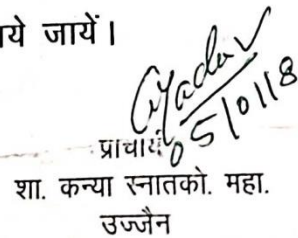 ये जायें।
Yadav
05/01/18
प्राचार्य
शा. कन्या स्नातको. महा.
उज्जैन